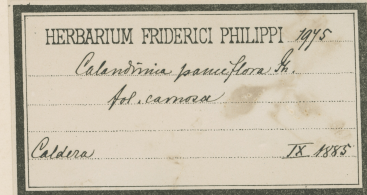 HERBARIUM FRIDERICI PHILIPPI 1975
Calandrinia pauciflora Ph.
fol. carnosa
Caldera IX 1885